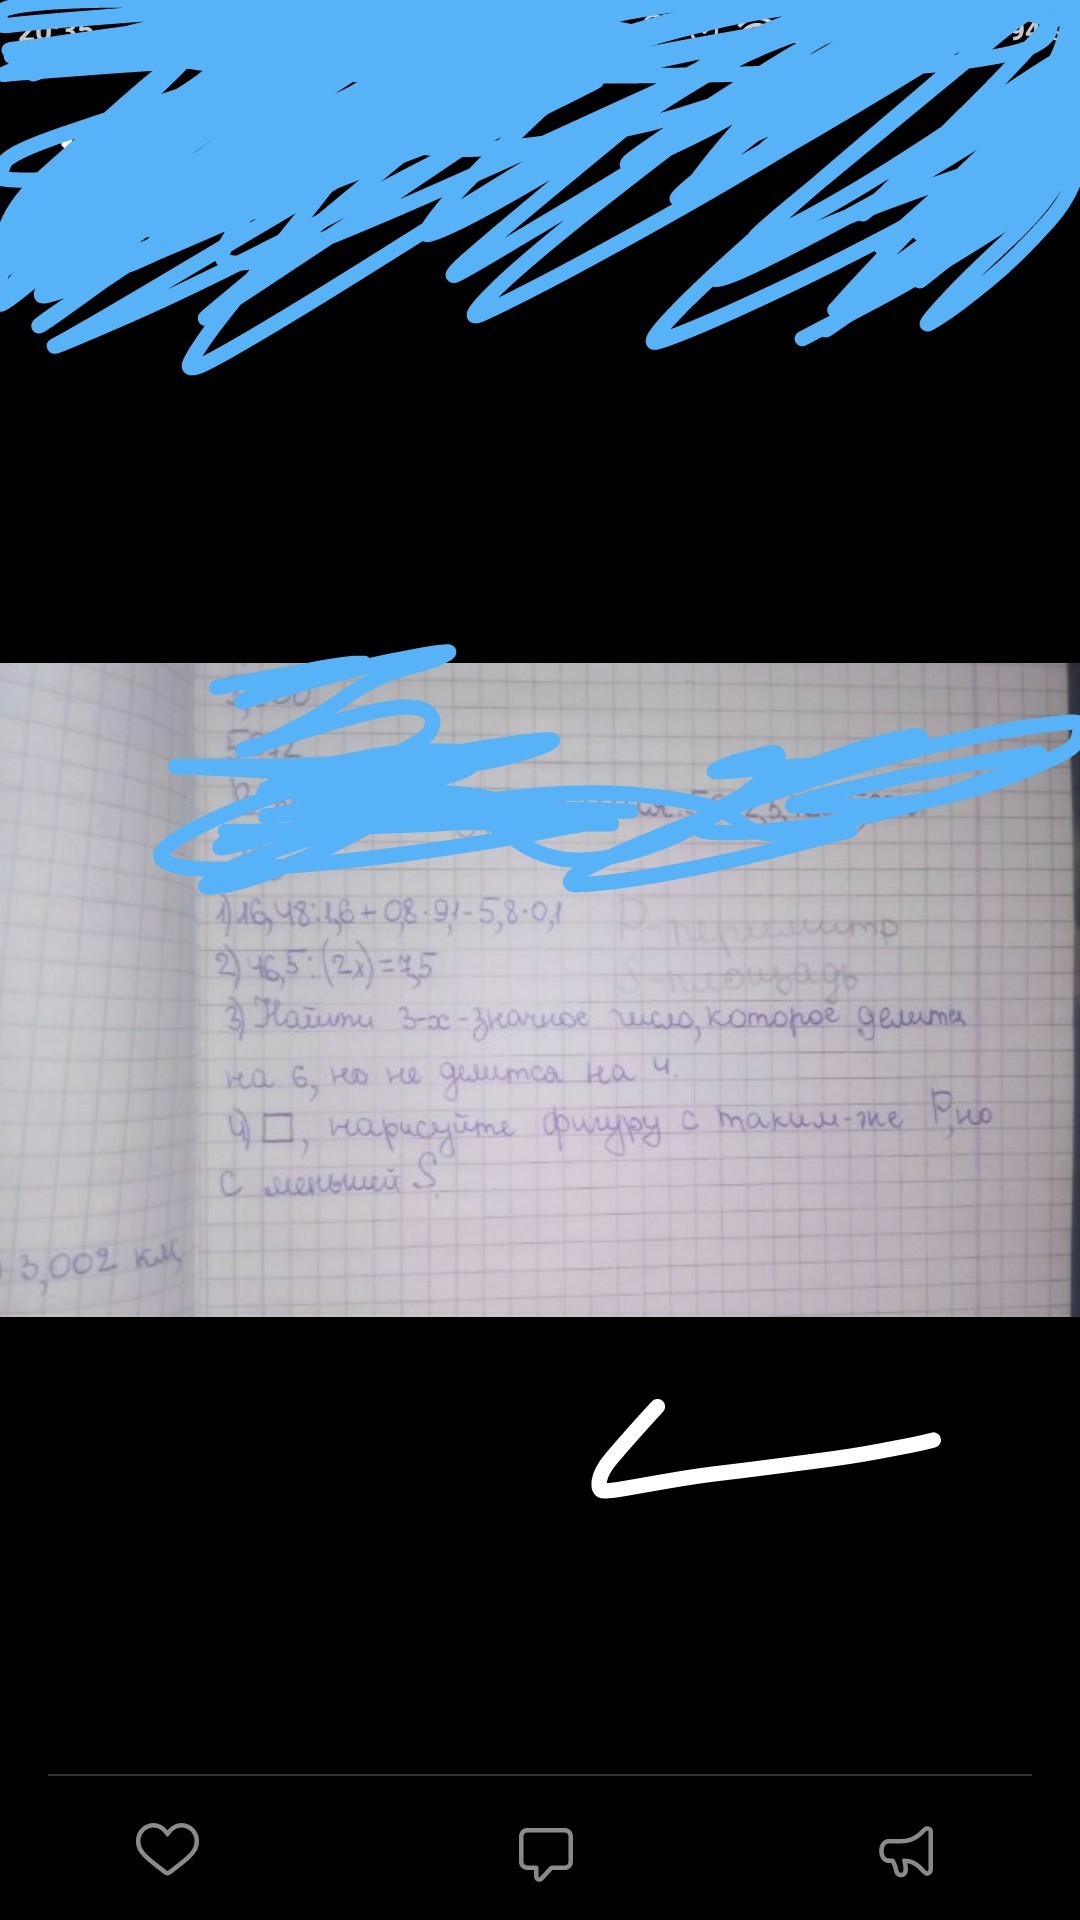 20:35
94
1) 16,48:1,6+0,8·9,1-5,8·0,1
P-периметр
2) 16,5:(2x)=7,5
S-площадь
3) Найти 3-х-значное число, которое делится
на 6, но не делится на 4.
4) □, нарисуйте фигуру с таким-же P, но
с меньшей S.
3,002 км